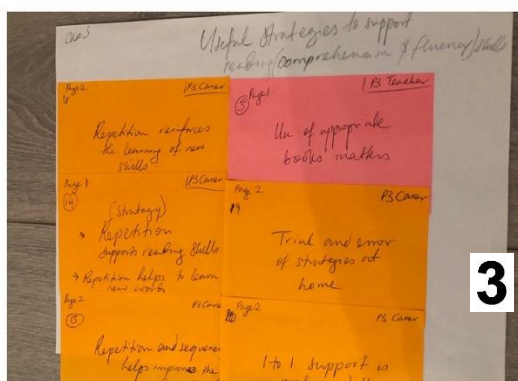 Useful strategies to support
reading (comprehension & fluency) skills
Page 2
P3 Carer
Repetition reinforces
the learning of new
skills
Page 1
P3 Teacher
5
Use of appropriate
books matters
Page 1
P3 Carer
(strategy)
Repetition
supports reading skills
→ Repetition helps to learn
new words
Page 2
P3 Carer
19
Trial and error
of strategies at
home
Page 2
P3 Carer
Repetition and sequence
helps improve the
Page 2
P3 Carer
1 to 1 support is
3